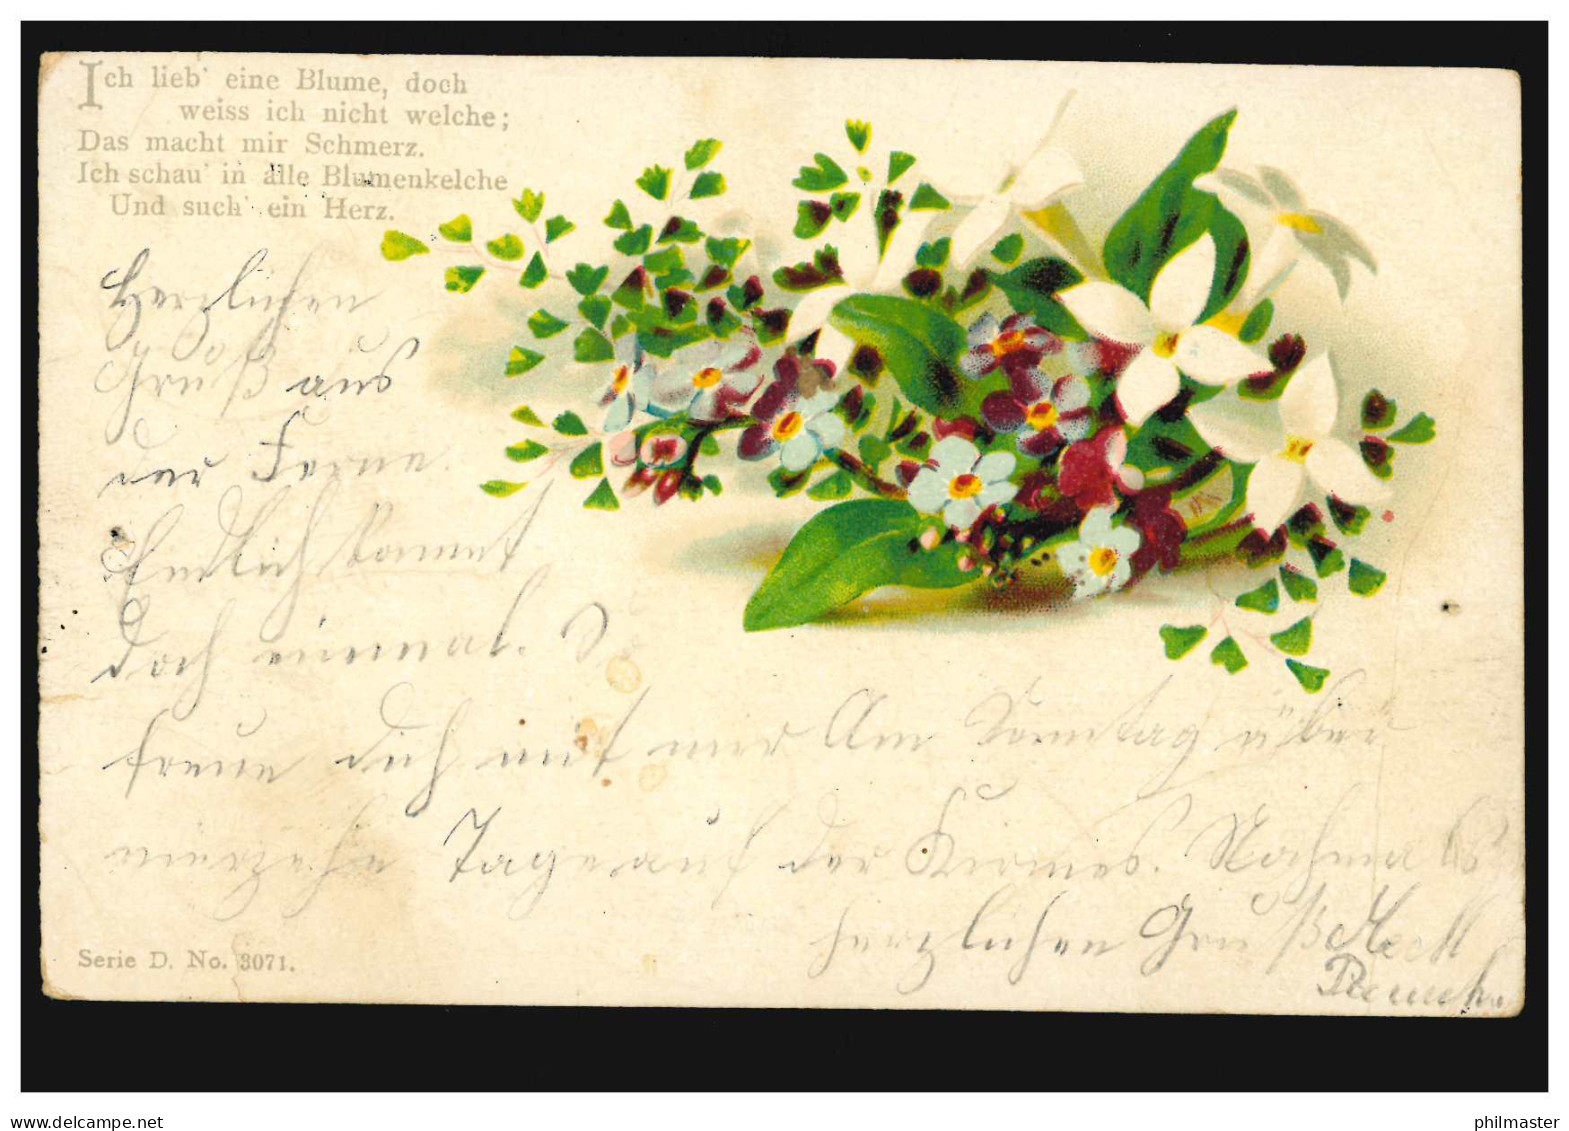 Ich lieb' eine Blume, doch
weiss ich nicht welche;
Das macht mir Schmerz.
Ich schau' in alle Blumenkelche
Und such' ein Herz.
Herzlichen
Gruß aus
der Ferne
Endlich kommt
doch einmal. So
freue dich mit mir Am Sonntag über
vierzehn Tage auf der Kirmes. Nochmals
herzlichen Gruß
Serie D. No. 3071.
www.delcampe.net
philmaster